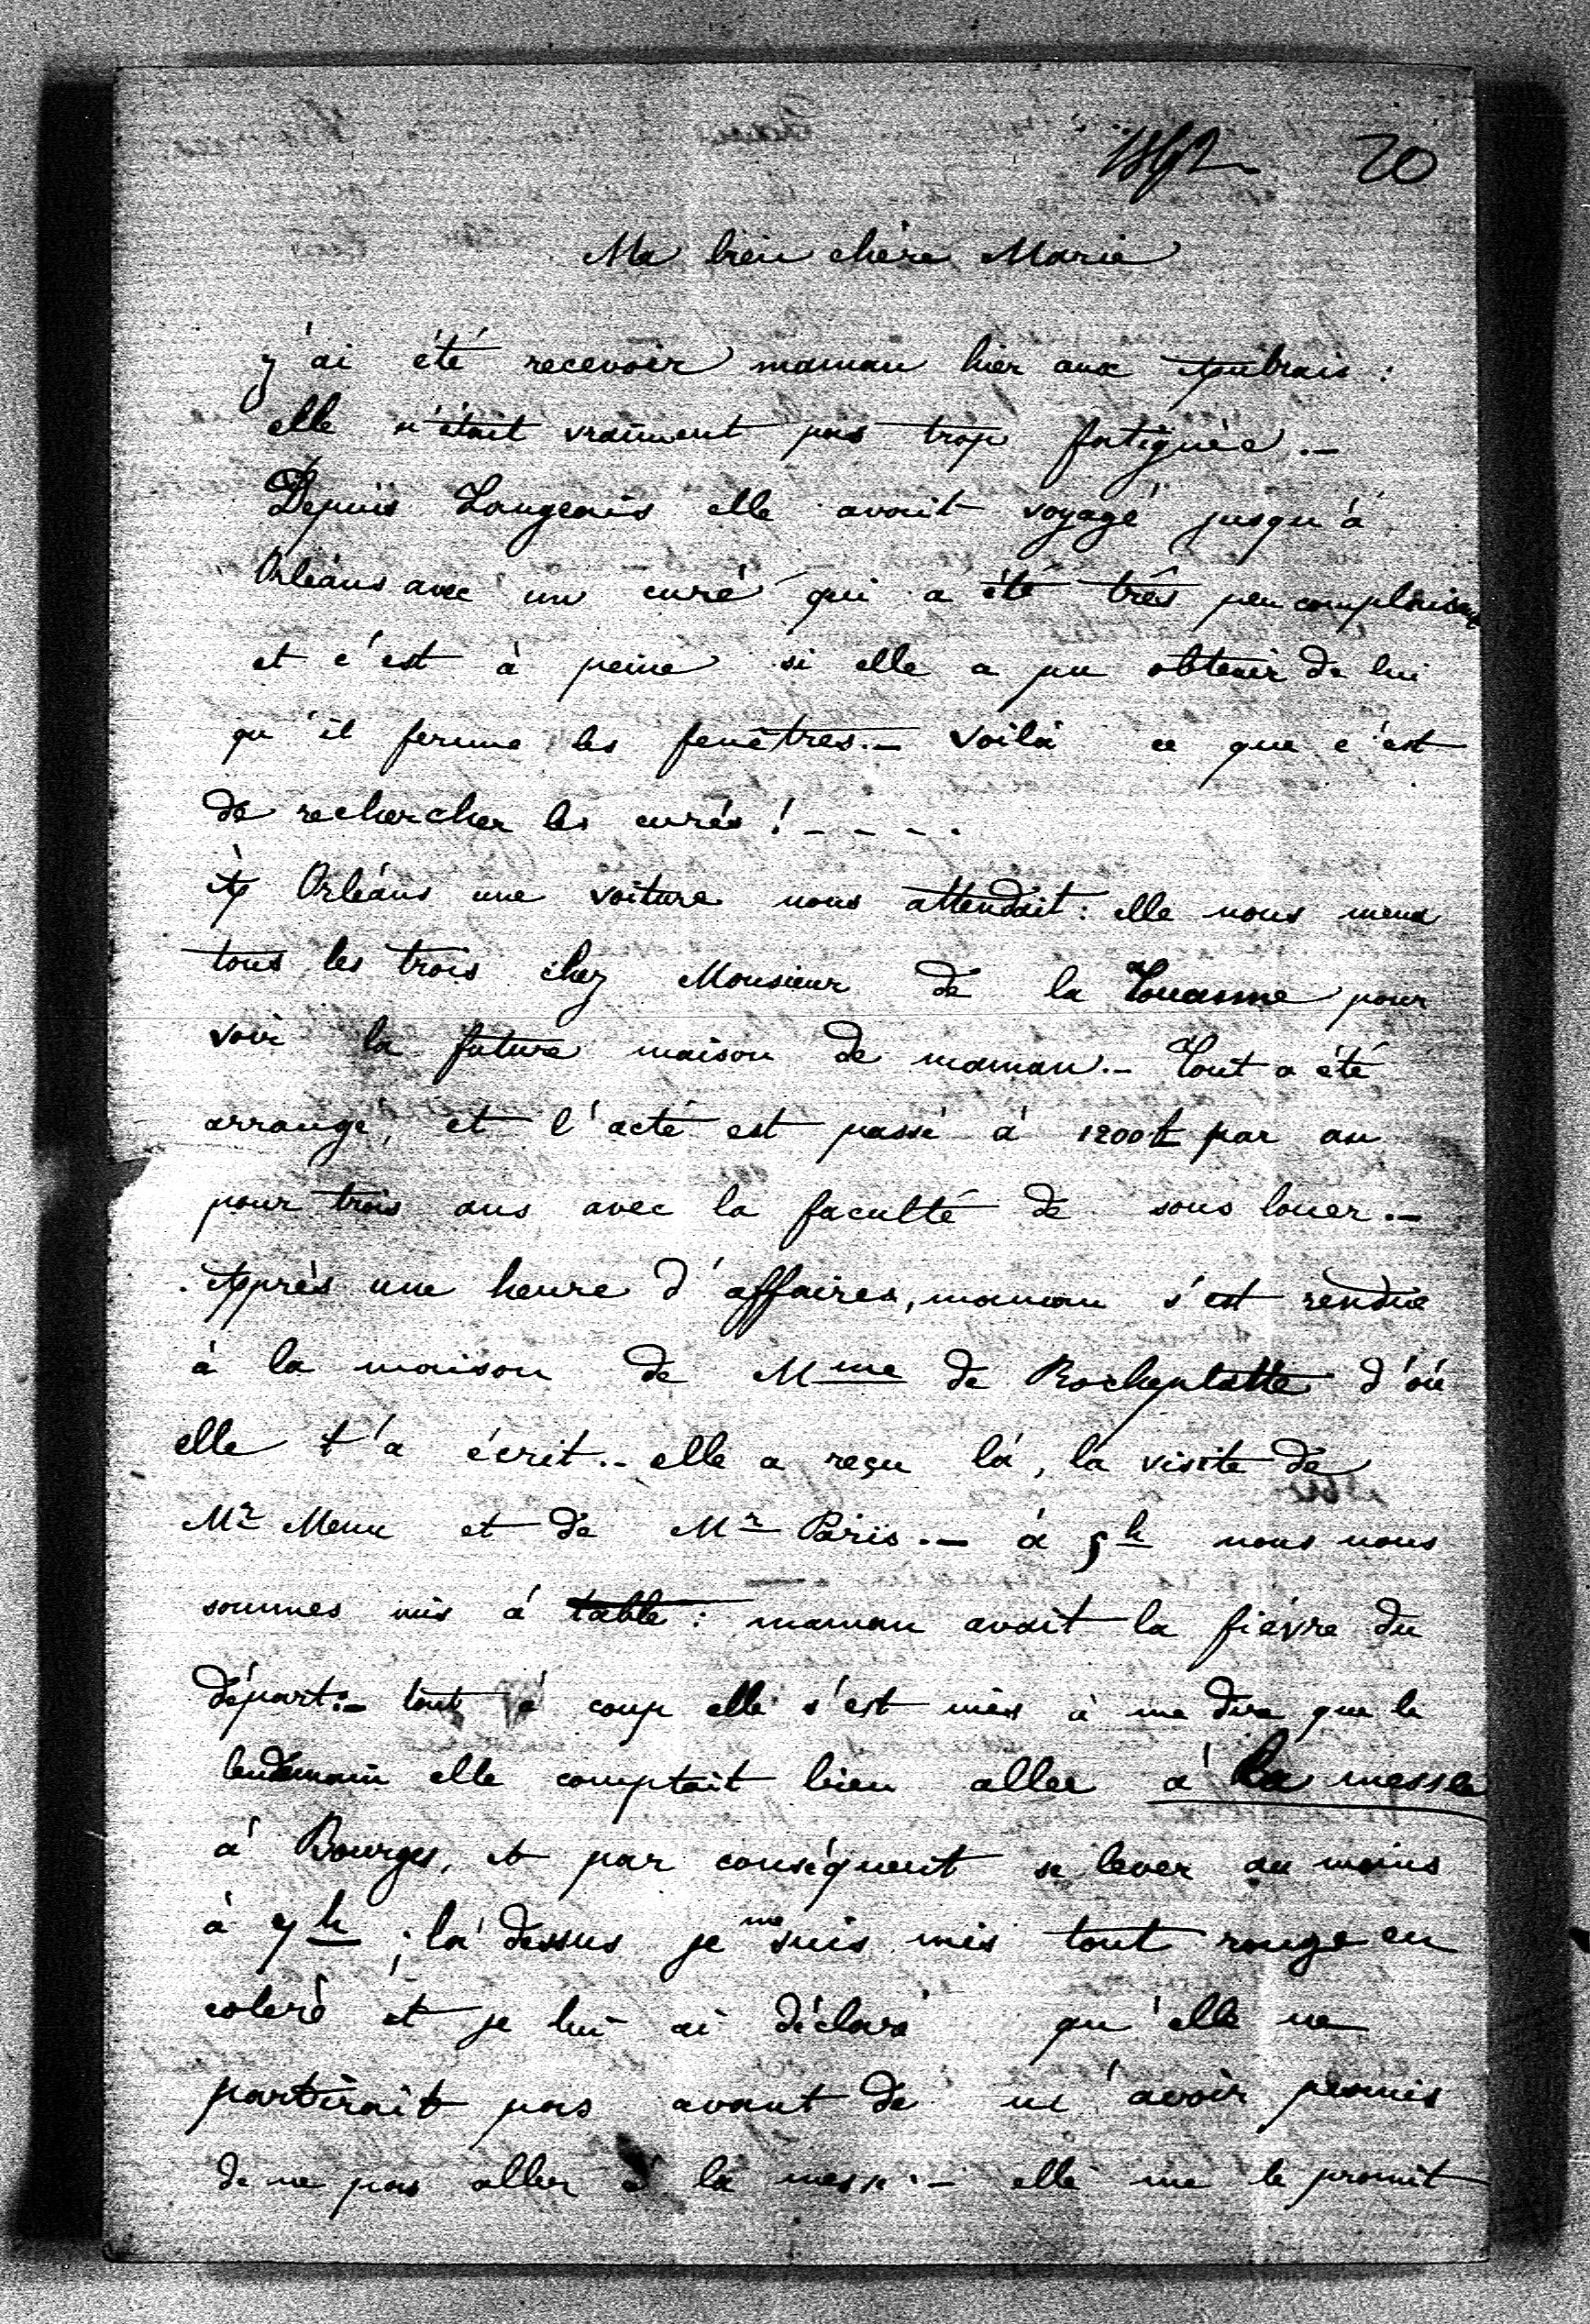 1892 20
Ma bien chère Marie
j'ai été recevoir maman hier aux Aubrais :
elle n'était vraiment pas trop fatiguée. —
Depuis Langeais elle avait voyagé jusqu'à
Orléans avec un curé qui a été très peu complaisant
et c'est à peine si elle a pu obtenir de lui
qu'il ferme les fenêtres. — Voilà ce que c'est
de rechercher les curés ! - - - .
À Orléans une voiture nous attendait : elle nous mena
tous les trois chez Monsieur de la Touanne pour
voir la future maison de maman. — Tout a été
arrangé, et l'acte est passé à 1200f par an
pour trois ans avec la faculté de sous louer. —
Après une heure d'affaires, maman s'est rendue
à la maison de Mme de Rocheplatte d'où
elle t'a écrit. — elle a reçu là, la visite de
Mr Menu et de Mr Paris. — à 5h nous nous
sommes mis à table : maman avait la fièvre du
départ : — tout à coup elle s'est mise à me dire que le
lendemain elle comptait bien aller à la messe
à Bourges, et par conséquent se lever au moins
à 7h ; là dessus je me suis mis tout rouge en
colère et je lui ai déclaré qu'elle ne
partirait pas avant de m'avoir promis
de ne pas aller à la messe. — elle me le promit